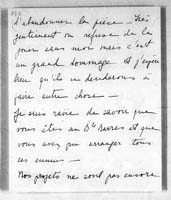 d'abandonner la pièce — Très
gentiment on refuse de la
jouer sans moi mais c'est
un grand dommage — et j'espère
bien qu'ils se décideront à
faire autre chose —
Je suis ravie de savoir que
vous êtes au Bd
et que
vous avez pu arranger tous
ces ennuis —
Nos projets ne sont pas encore